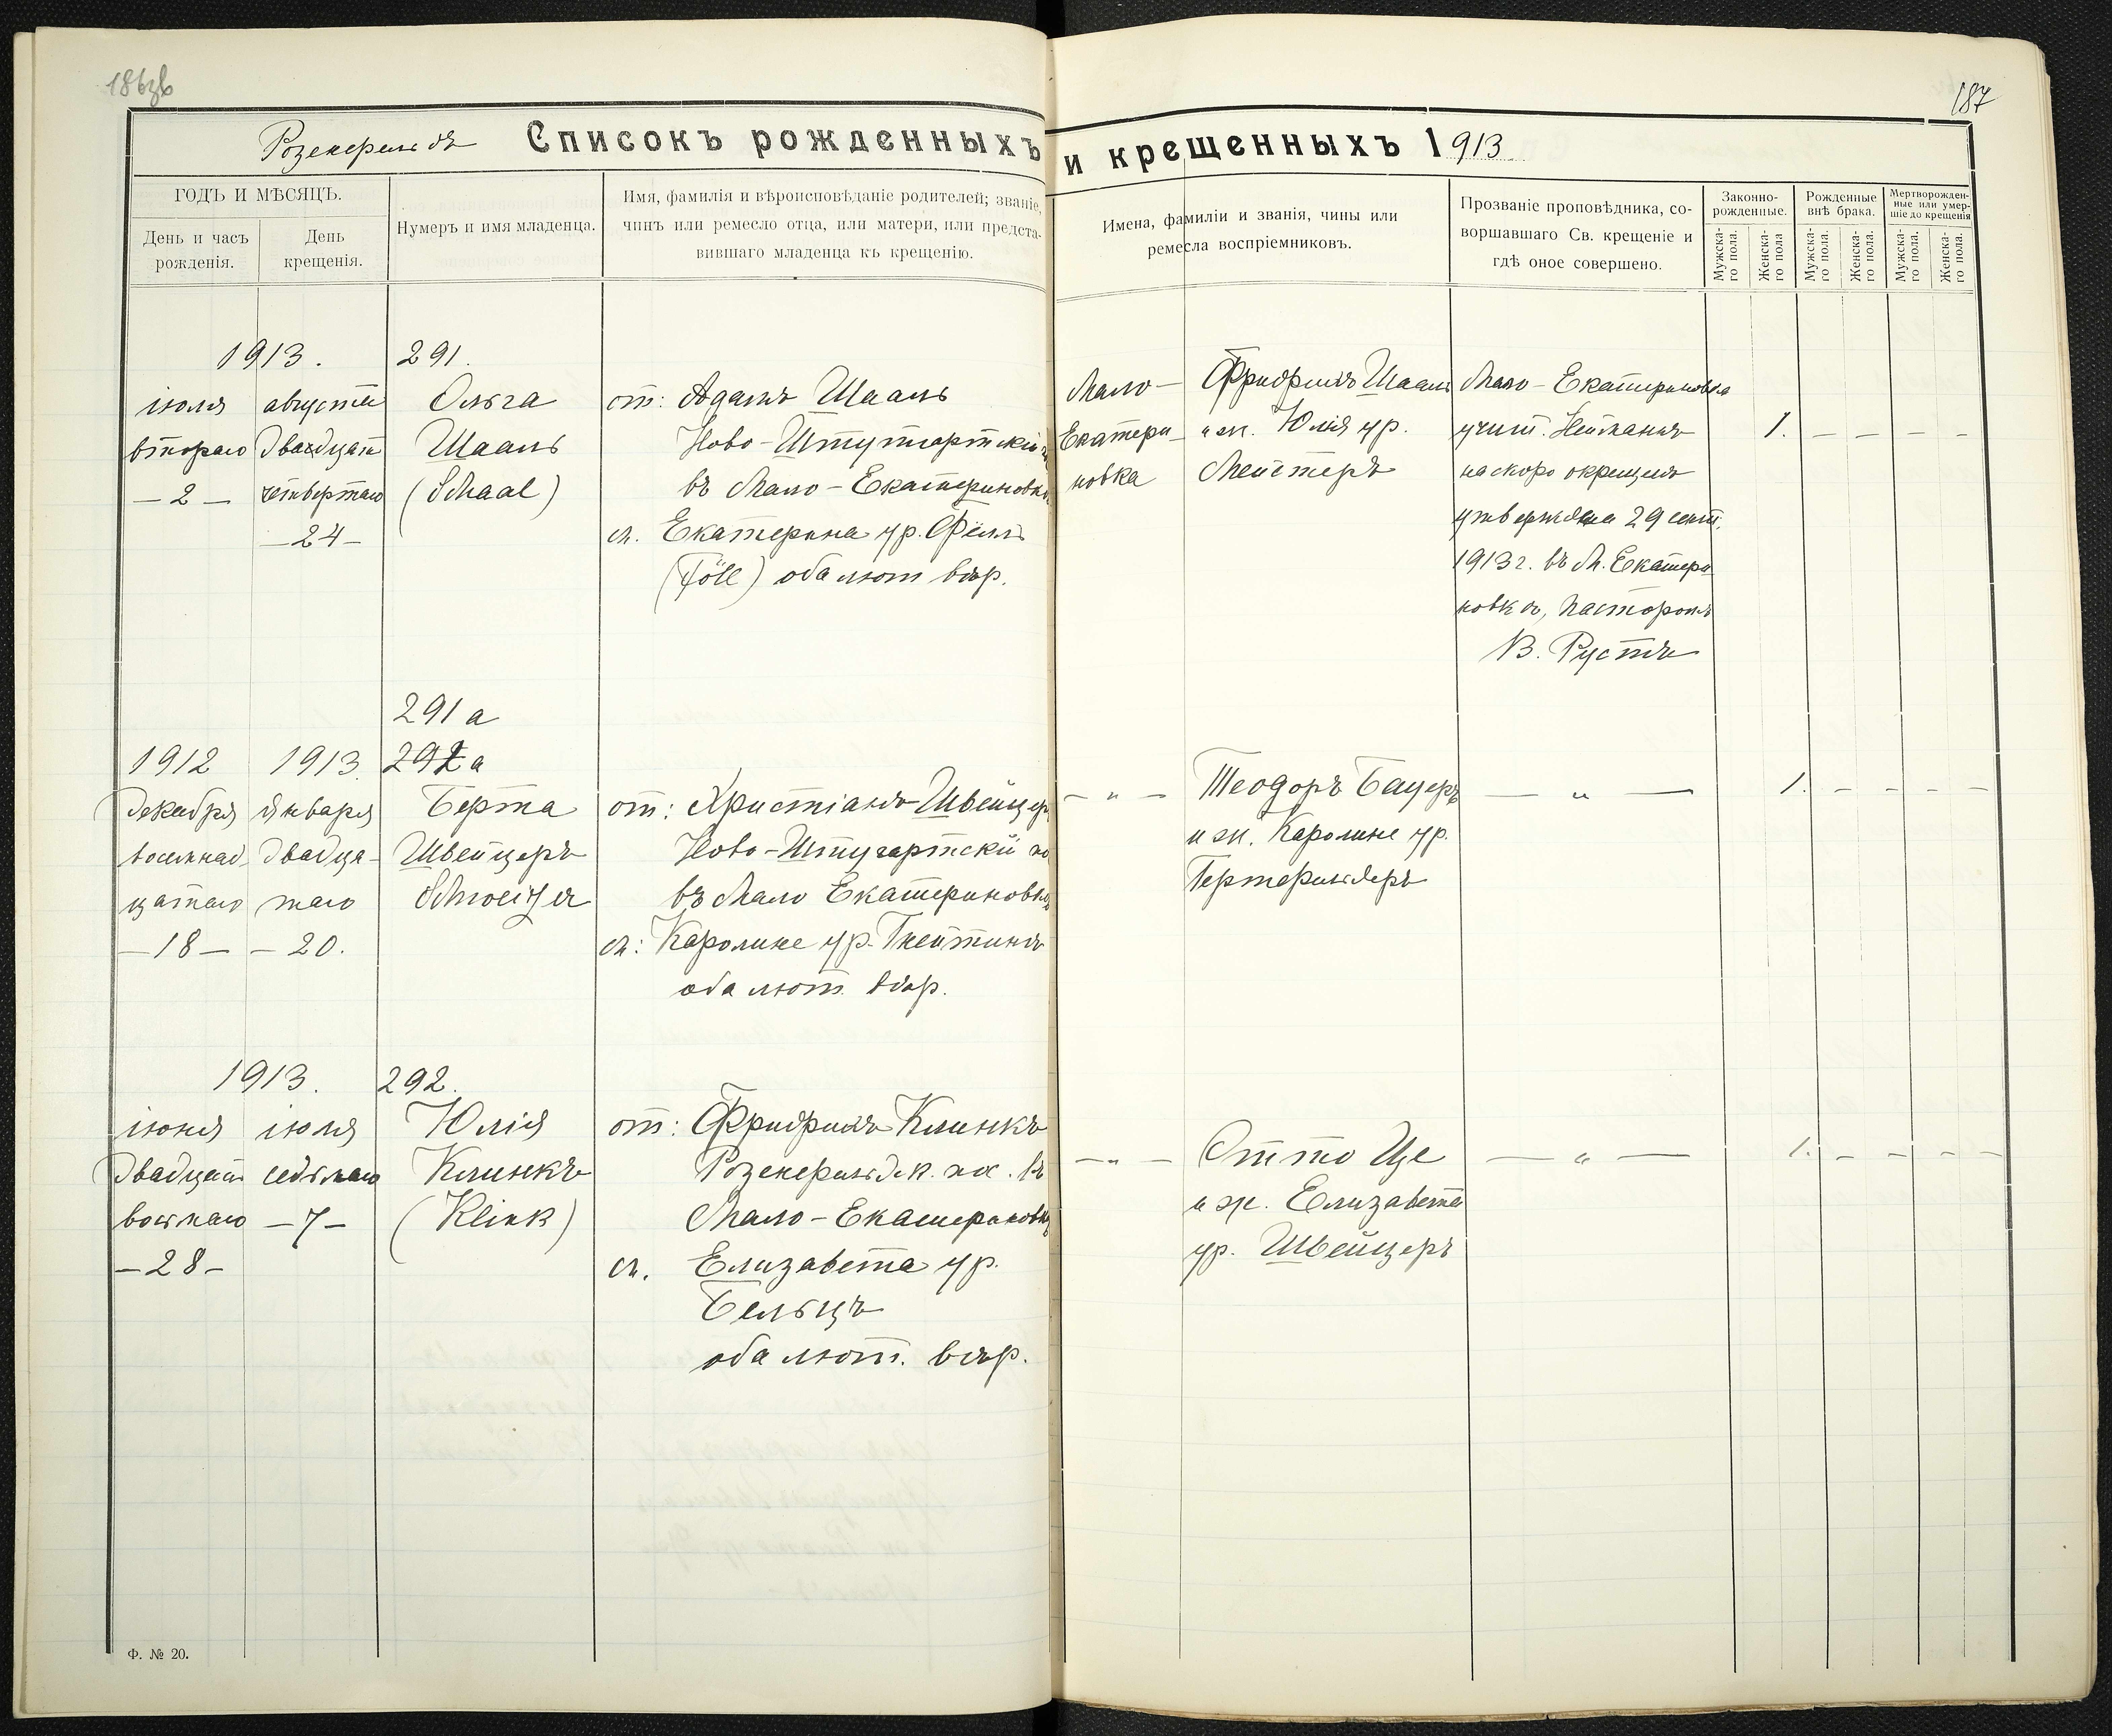 186зв
187
Розенфельдъ Списокъ рожденныхъ и крещенныхъ 1913
ГОДЪ И МѢСЯЦЪ.
День и часъ рожденія.
День крещенія.
Нумеръ и имя младенца.
Имя, фамилія и вѣроисповѣданіе родителей; званіе,
чинъ или ремесло отца, или матери, или предста-
вившаго младенца къ крещенію.
Имена, фамиліи и званія, чины или
ремесла воспріемниковъ.
Прозваніе проповѣдника, со-
воршавшаго Св. крещеніе и
гдѣ оное совершено.
Законно-
рожденные.
Рожденные
внѣ брака.
Мертворожден-
ные или умер-
шіе до крещенія
Мужска-
го пола.
Женска-
го пола
Мужска-
го пола.
Женска-
го пола.
Мужска-
го пола.
Женска-
го пола.
1913.
іюля
второго
— 2 —
августа
двадцать
четвертаго
— 24 —
291.
Ольга
Шааль
(Schaal)
от: Адамъ Шааль
Ново-Штутгартскій
въ Мало-Екатериновкѣ
м. Екатерина ур. Фёлль
(Föll) оба лют вѣр.
Мало-
Екатери-
новка
Фридрихъ Шааль
и ж. Юлія ур.
Мейстеръ
Мало-Екатериновка
учит. Нейманъ
наскоро окрещена
утверждена 29 сент.
1913 г. въ М. Екатери-
новкѣ, пасторомъ
В. Рустъ
1. — — — —
291 а
292 а
1912
декабря
восемнад-
цатаго
— 18 —
1913.
января
двадца-
таго
— 20.
Берта
Швейцеръ
Schweizer
от: Христіанъ Швейцеръ
Ново-Штутгартскій по
въ Мало Екатериновкѣ
м: Каролине ур. Гнейтингъ
оба лют. вѣр.
— " —
Теодоръ Бауеръ
и ж. Каролине ур.
Гертерфельдеръ
— " —
1. — — — —
1913.
іюня
двадцать
восьмаго
— 28 —
іюля
седьмаго
— 7 —
292.
Юлія
Клинкъ
(Klink)
от: Фридрихъ Клинкъ
Розенфельдск. пос. въ
Мало-Екатериновкѣ
м. Елизавета ур.
Бельцъ
оба лют. вѣр.
— " —
Отто Це
и ж. Елизавета
ур. Швейцеръ
— " —
1. — — — —
Ф. № 20.